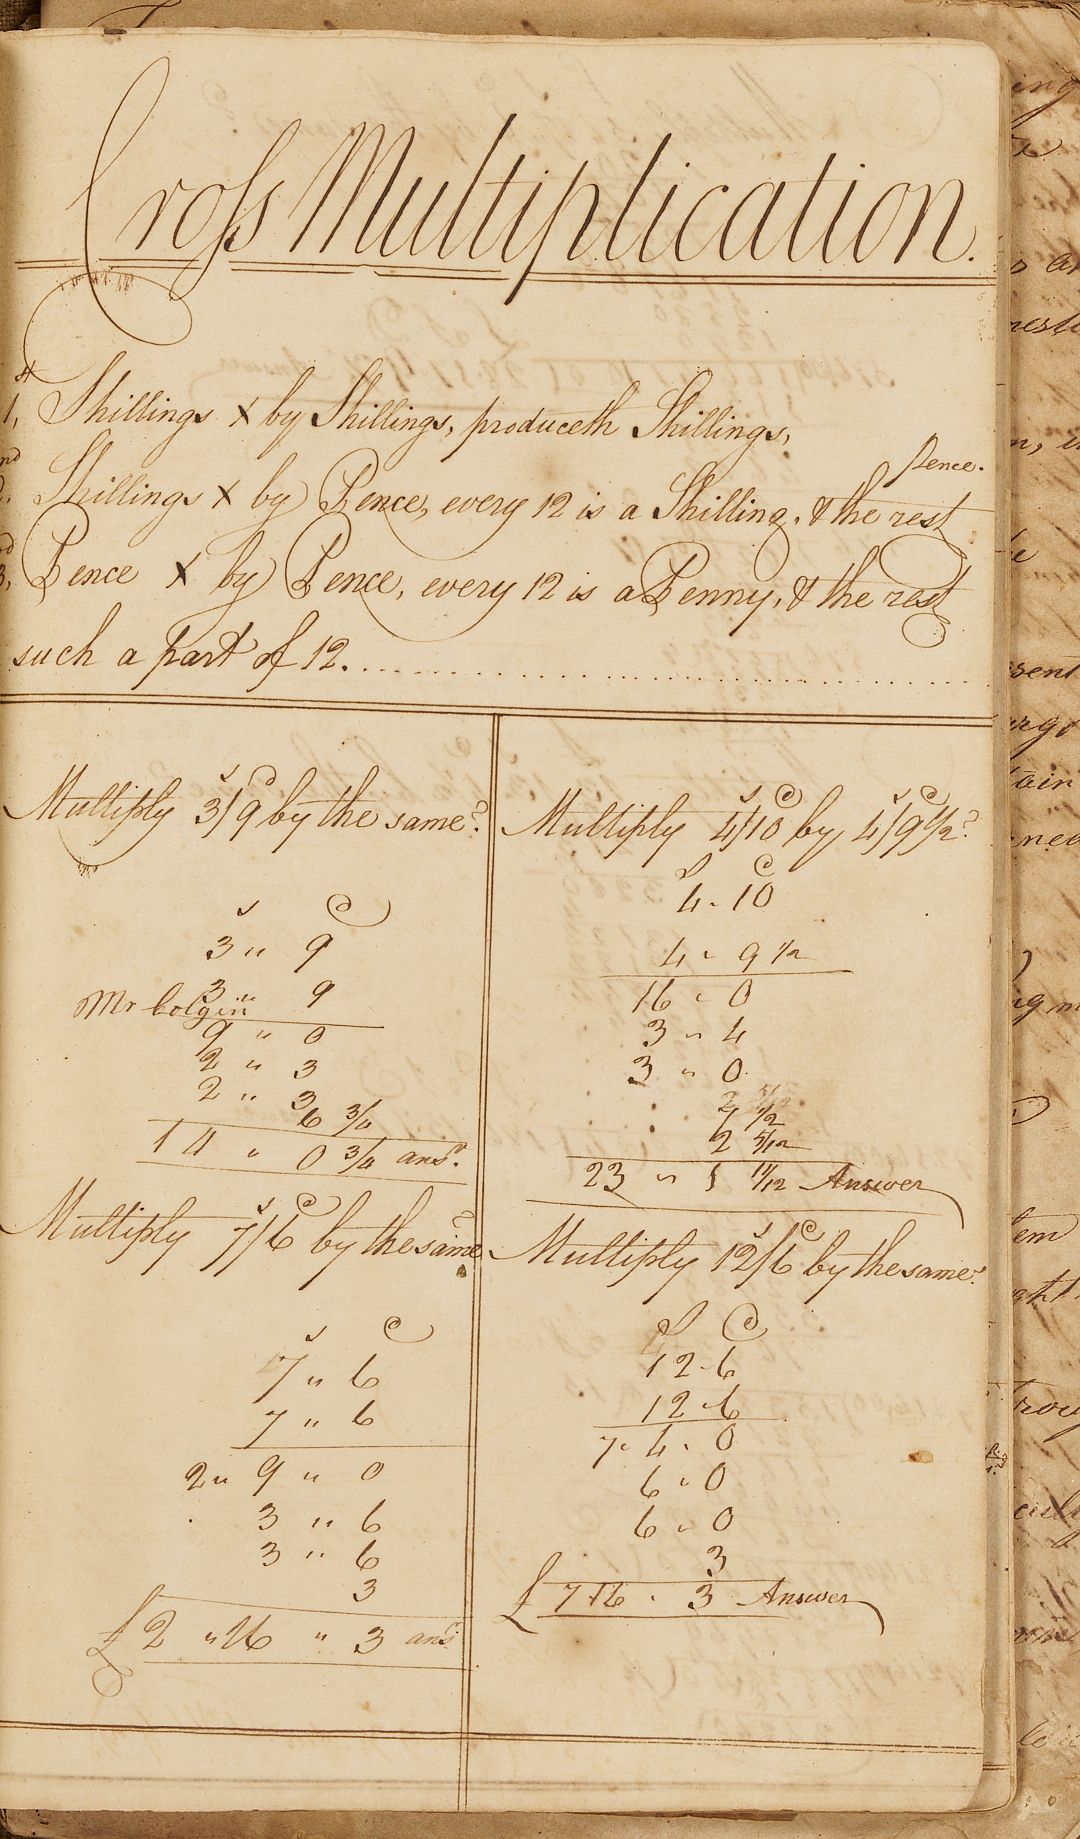 Cross Multiplication.
1st, Shillings × by Shillings, produceth Shillings,
2nd. Shillings × by Pence, every 12 is a Shilling, & the rest pence.
3rd, Pence × by Pence, every 12 is a Penny, & the rest
such a part of 12.
Multiply 3/9 by the same?
s d
3 " 9
3 " 9
Mr Colgin
9 " 0
2 " 3
2 " 3
6 3/4
14 " 0 3/4 ans.
Multiply 7/6 by the same?
s d
7 " 6
7 " 6
2 " 9 " 0
3 " 6
3 " 6
3
£ 2 " 16 " 3 ans.
Multiply 4/10 by 4/9 1/2?
s d
4 " 10
4 " 9 1/2
16 " 0
3 " 4
3 " 0
2 5/12
7 1/2
2 5/12
23 " 1 11/12 Answer
Multiply 12/6 by the same?
s d
12 " 6
12 " 6
7 " 4 " 0
6 " 0
6 " 0
3
£ 7 16 " 3 Answer